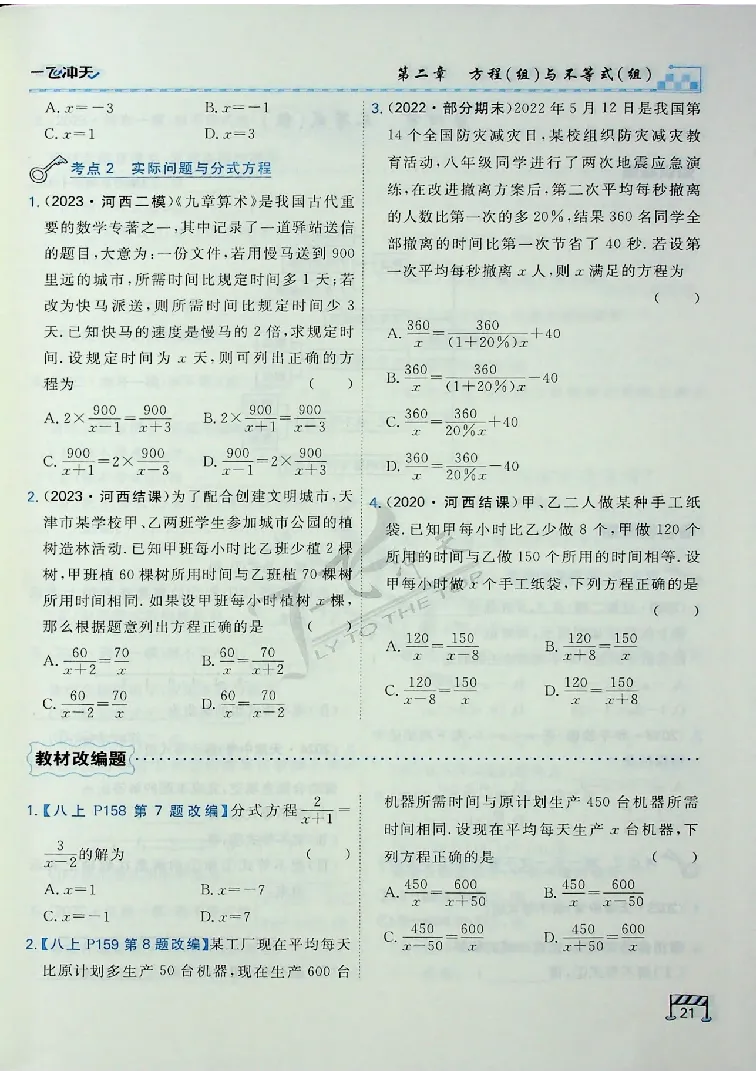 一飞冲天
第二章 方程(组)与不等式(组)
A. x=-3 B. x=-1
C. x=1 D. x=3
考点2 实际问题与分式方程
1. (2023·河西二模)《九章算术》是我国古代重
要的数学专著之一,其中记录了一道驿站送信
的题目,大意为:一份文件,若用慢马送到 900
里远的城市,所需时间比规定时间多 1 天;若
改为快马派送,则所需时间比规定时间少 3
天. 已知快马的速度是慢马的 2 倍,求规定时
间. 设规定时间为 x 天,则可列出正确的方
程为 ( )
A. 2×900/(x-1)=900/(x+3) B. 2×900/(x+1)=900/(x-3)
C. 900/(x+1)=2×900/(x-3) D. 900/(x-1)=2×900/(x+3)
2. (2023·河西结课)为了配合创建文明城市,天
津市某学校甲、乙两班学生参加城市公园的植
树造林活动. 已知甲班每小时比乙班少植 2 棵
树,甲班植 60 棵树所用时间与乙班植 70 棵树
所用时间相同. 如果设甲班每小时植树 x 棵,
那么根据题意列出方程正确的是 ( )
A. 60/(x+2)=70/x B. 60/x=70/(x+2)
C. 60/(x-2)=70/x D. 60/x=70/(x-2)
3. (2022·部分期末)2022 年 5 月 12 日是我国第
14 个全国防灾减灾日,某校组织防灾减灾教
育活动,八年级同学进行了两次地震应急演
练,在改进撤离方案后,第二次平均每秒撤离
的人数比第一次的多 20%,结果 360 名同学全
部撤离的时间比第一次节省了 40 秒. 若设第
一次平均每秒撤离 x 人,则 x 满足的方程为
( )
A. 360/x=360/((1+20%)x)+40
B. 360/x=360/((1+20%)x)-40
C. 360/x=360/(20%x)+40
D. 360/x=360/(20%x)-40
4. (2020·河西结课)甲、乙二人做某种手工纸
袋. 已知甲每小时比乙少做 8 个,甲做 120 个
所用的时间与乙做 150 个所用的时间相等. 设
甲每小时做 x 个手工纸袋,下列方程正确的是
( )
A. 120/x=150/(x-8) B. 120/(x+8)=150/x
C. 120/(x-8)=150/x D. 120/x=150/(x+8)
LY TO THE TOP
教材改编题
1.【八上 P158 第 7 题改编】分式方程 2/(x+1)=
3/(x-2)的解为 ( )
A. x=1 B. x=-7
C. x=-1 D. x=7
2.【八上 P159 第 8 题改编】某工厂现在平均每天
比原计划多生产 50 台机器,现在生产 600 台
机器所需时间与原计划生产 450 台机器所需
时间相同. 设现在平均每天生产 x 台机器,下
列方程正确的是 ( )
A. 450/x=600/(x+50) B. 450/x=600/(x-50)
C. 450/(x-50)=600/x D. 450/(x+50)=600/x
21